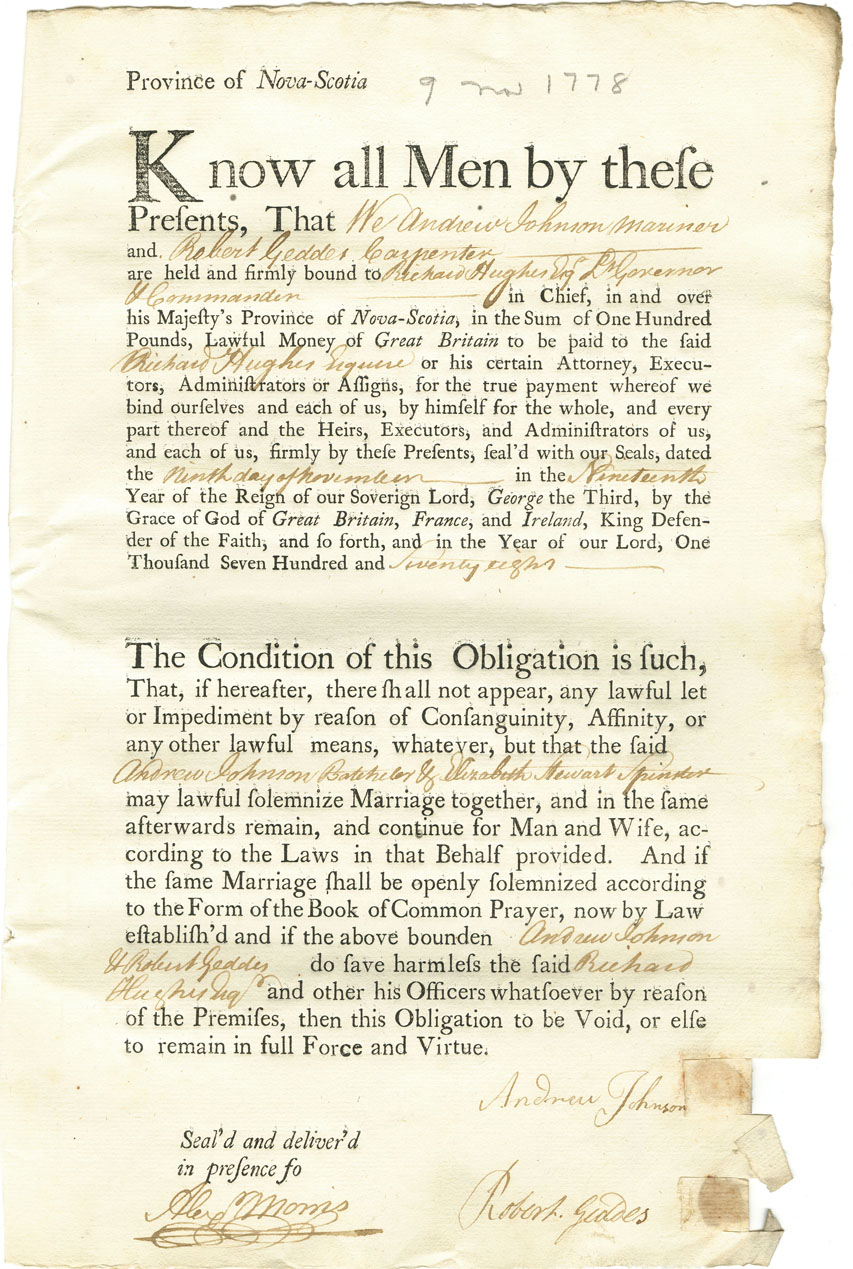 Province of Nova-Scotia 9 nov 1778
Know all Men by theſe
Preſents, That We Andrew Johnson mariner
and Robert Geddes Carpenter
are held and firmly bound to Richard Hughes Esqr Lt Governor
& Commander in Chief, in and over
his Majeſty's Province of Nova-Scotia, in the Sum of One Hundred
Pounds, Lawful Money of Great Britain to be paid to the ſaid
Richard Hughes Esquire or his certain Attorney, Execu-
tors, Adminiſtrators or Aſſigns, for the true payment whereof we
bind ourſelves and each of us, by himſelf for the whole, and every
part thereof and the Heirs, Executors, and Adminiſtrators of us,
and each of us, firmly by theſe Preſents, ſeal'd with our Seals, dated
the Ninth day of November in the Nineteenth
Year of the Reign of our Soverign Lord, George the Third, by the
Grace of God of Great Britain, France, and Ireland, King Defen-
der of the Faith, and ſo forth, and in the Year of our Lord, One
Thouſand Seven Hundred and Seventy eight
The Condition of this Obligation is ſuch,
That, if hereafter, there ſhall not appear, any lawful let
or Impediment by reaſon of Conſanguinity, Affinity, or
any other lawful means, whatever, but that the ſaid
Andrew Johnson Batcheler & Elizabeth Stewart Spinster
may lawful ſolemnize Marriage together, and in the ſame
afterwards remain, and continue for Man and Wife, ac-
cording to the Laws in that Behalf provided. And if
the ſame Marriage ſhall be openly ſolemnized according
to the Form of the Book of Common Prayer, now by Law
eſtabliſh'd and if the above bounden Andrew Johnson
& Robert Geddes do ſave harmleſs the ſaid Richard
Hughes Esqr and other his Officers whatſoever by reaſon
of the Premiſes, then this Obligation to be Void, or elſe
to remain in full Force and Virtue.
Andrew Johnson
Seal'd and deliver'd
in preſence fo
Alexr Morris
Robert Geddes